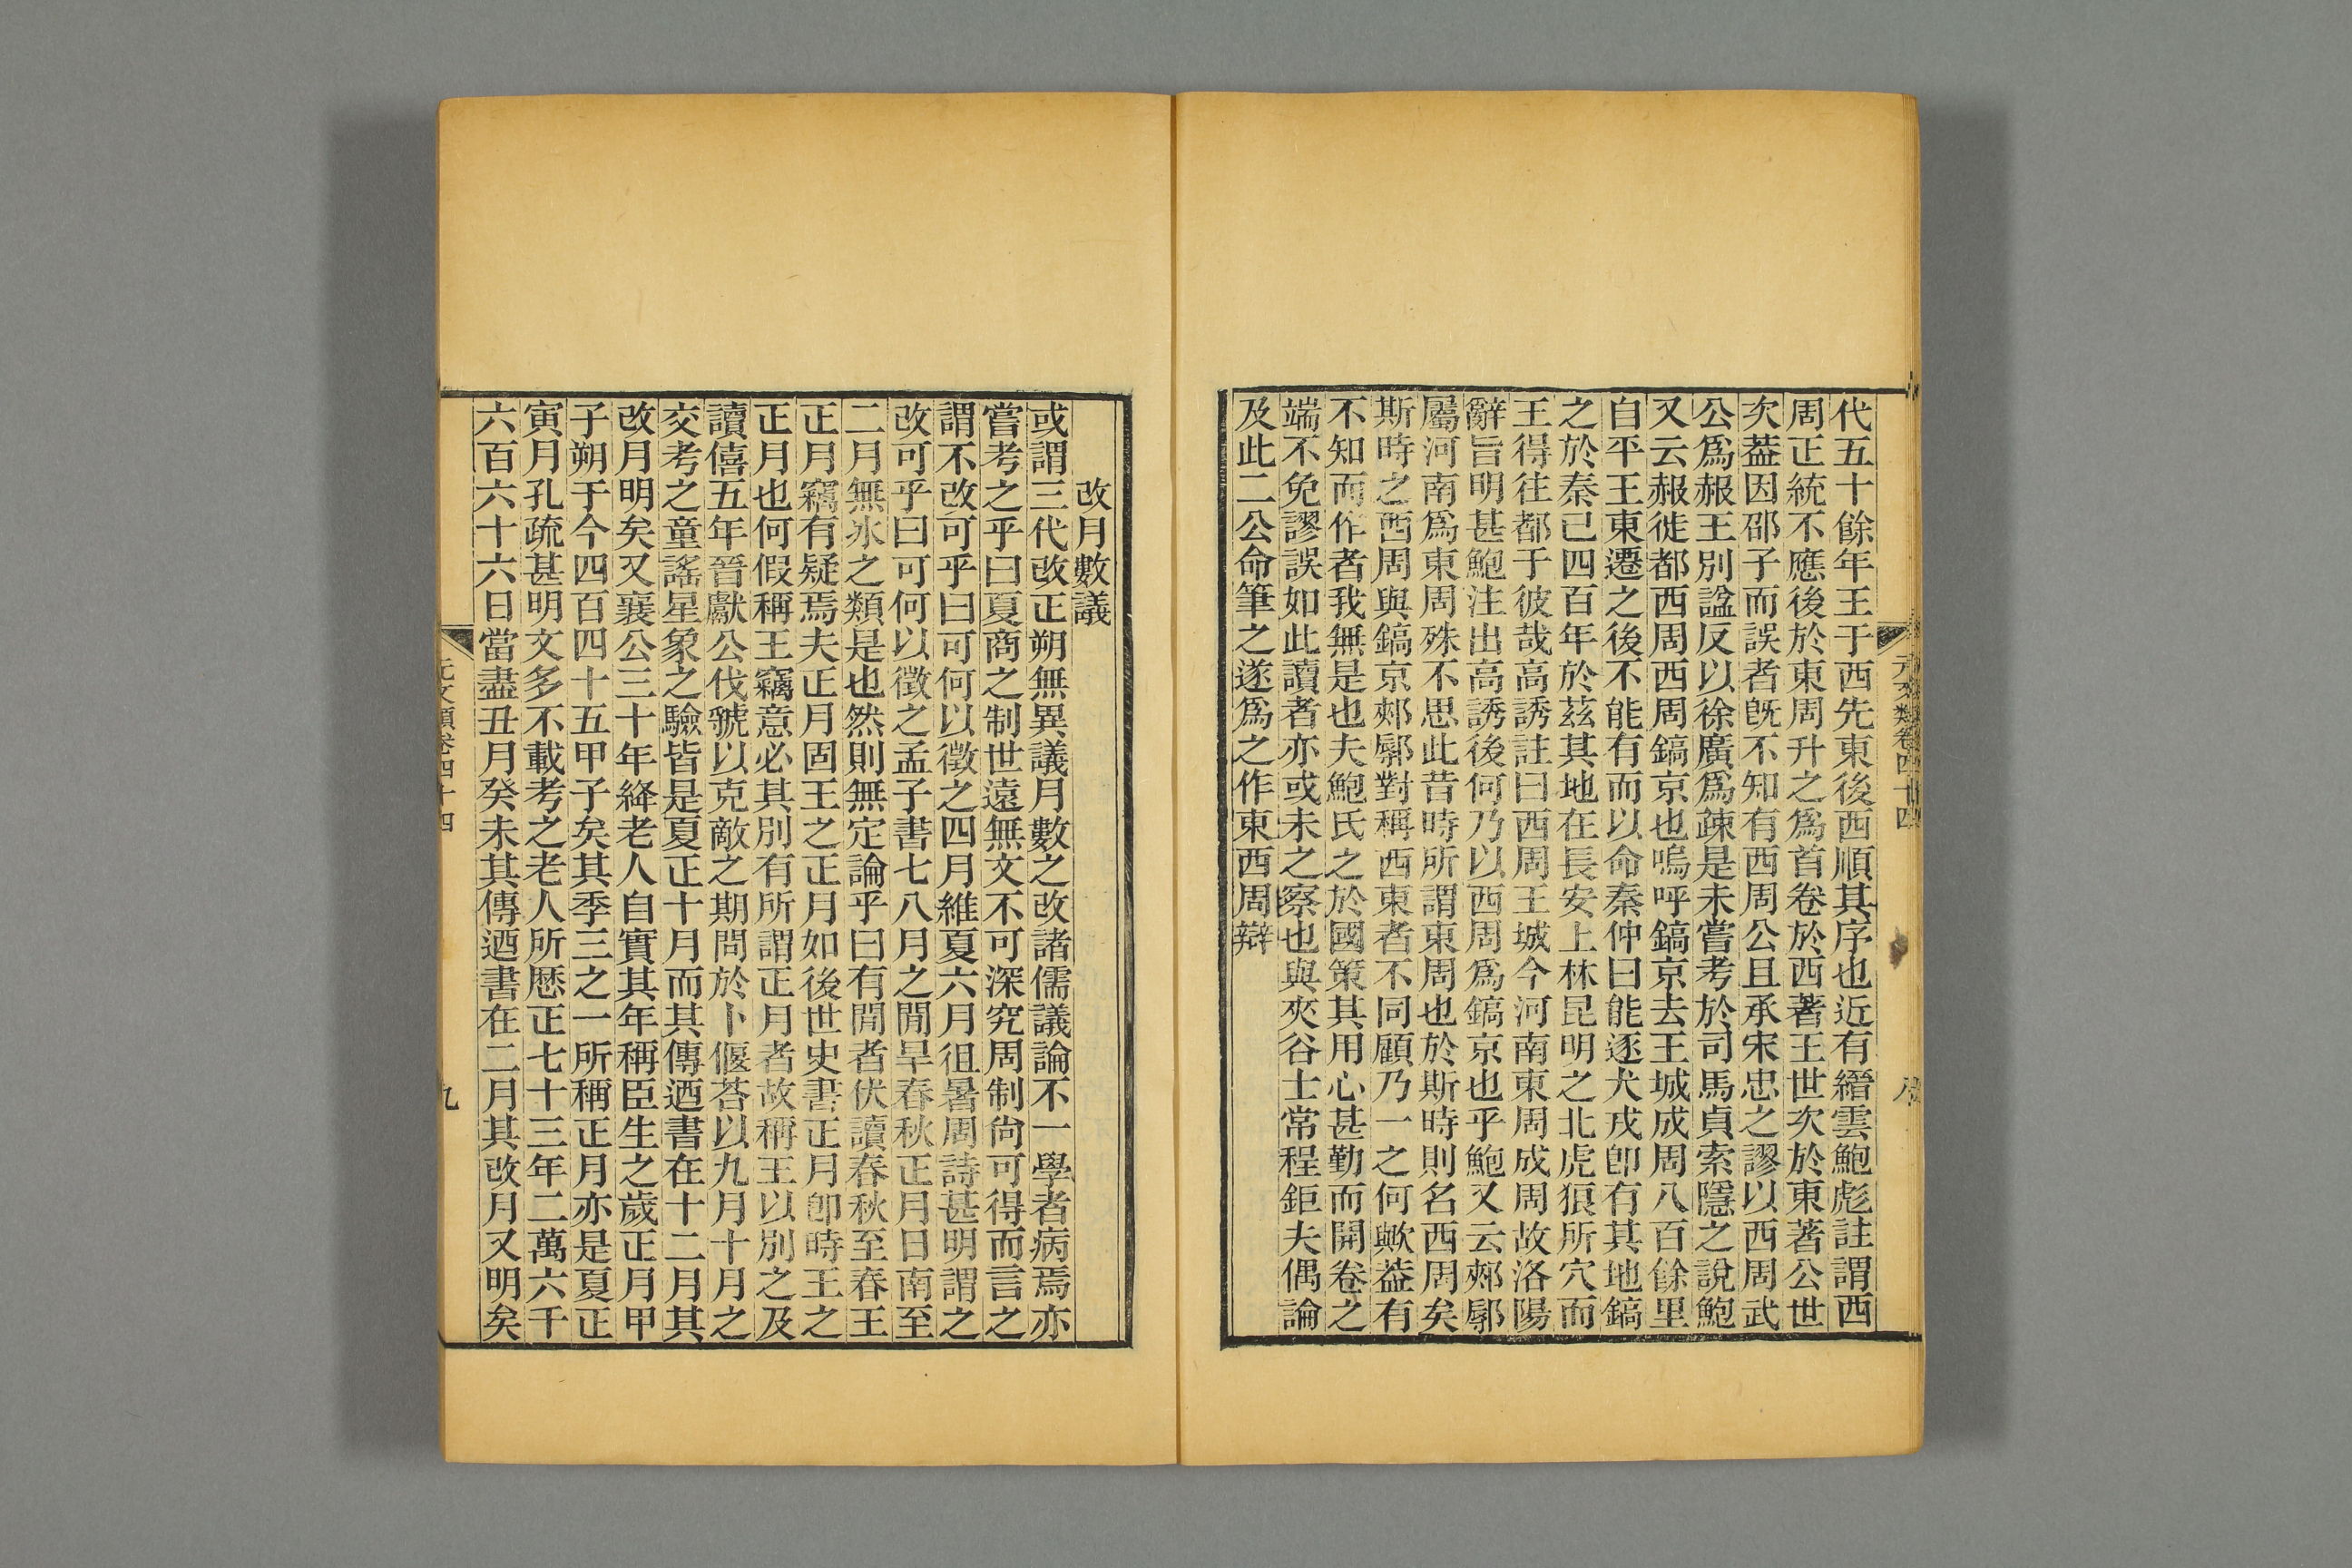 代五十餘年王于西先東後西順其序也近有縉雲鮑彪註謂西
周正統不應後於東周升之爲首卷於西著王世次於東著公世
次葢因邵子而誤者旣不知有西周公且承宋忠之謬以西周武
公爲赧王別諡反以徐廣爲疎是未嘗考於司馬貞索隱之說鮑
又云赧徙都西周西周鎬京也嗚呼鎬京去王城成周八百餘里
自平王東遷之後不能有而以命秦仲曰能逐犬戎卽有其地鎬
之於秦已四百年於茲其地在長安上林昆明之北虎狼所穴而
王得往都于彼哉高誘註曰西周王城今河南東周成周故洛陽
辭旨明甚鮑注出高誘後何乃以西周爲鎬京也乎鮑又云郟鄏
屬河南爲東周殊不思此昔時所謂東周也於斯時則名西周矣
斯時之西周與鎬京郟鄏對稱西東者不同顧乃一之何歟葢有
不知而作者我無是也夫鮑氏之於國策其用心甚勤而開卷之
端不免謬誤如此讀者亦或未之察也與夾谷士常程鉅夫偶論
及此二公命筆之遂爲之作東西周辯
改月數議
或謂三代改正朔無異議月數之改諸儒議論不一學者病焉亦
嘗考之乎曰夏商之制世遠無文不可深究周制尙可得而言之
謂不改可乎曰可何以徵之四月維夏六月徂暑周詩甚明謂之
改可乎曰可何以徵之孟子書七八月之閒旱春秋正月日南至
二月無氷之類是也然則無定論乎曰有閒者伏讀春秋至春王
正月竊有疑焉夫正月固王之正月如後世史書正月卽時王之
正月也何假稱王竊意必其別有所謂正月者故稱王以別之及
讀僖五年晉獻公伐虢以克敵之期問於卜偃荅以九月十月之
交考之童謠星象之驗皆是夏正十月而其傳迺書在十二月其
改月明矣又襄公三十年絳老人自實其年稱臣生之歲正月甲
子朔于今四百四十五甲子矣其季三之一所稱正月亦是夏正
寅月孔疏甚明文多不載考之老人所歴正七十三年二萬六千
六百六十六日當盡丑月癸未其傳迺書在二月其改月又明矣
元文類卷四十四
九